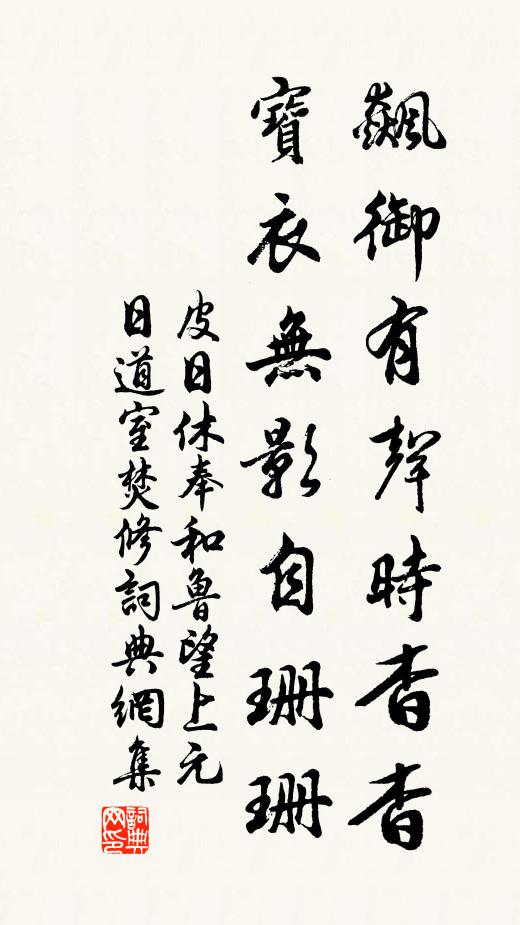 飆御有聲時杳杳
寶衣無影自珊珊
皮日休奉和魯望上元
日道室焚修詞典網集
詞典網印